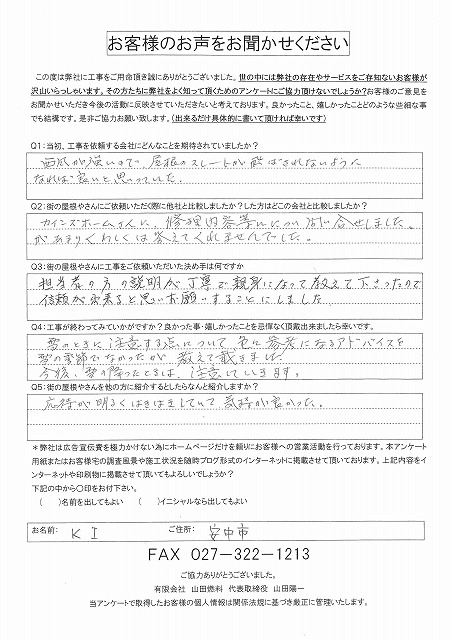 お客様のお声をお聞かせください
この度は弊社に工事をご用命頂き誠にありがとうございました。世の中には弊社の存在やサービスをご存知ないお客様が
沢山いらっしゃいます。その方たちに弊社をよく知って頂くためのアンケートにご協力頂けないでしょうか?お客様のご意見を
お聞かせいただき今後の活動に反映させていただきたいと考えております。良かったこと、嬉しかったことどのような些細な事
でも結構です。是非ご協力お願い致します。(出来るだけ具体的に書いて頂ければ幸いです)
Q1:当初、工事を依頼する会社にどんなことを期待されていましたか?
西風が強いので、屋根のスレートが飛ばされないように
なれば良いと思っていた。
Q2:街の屋根やさんにご依頼いただく際に他社と比較しましたか?した方はどこの会社と比較しましたか?
カインズホームさんに、修理内容等について問い合せしました。
があまりくわしくは答えてくれませんでした。
Q3:街の屋根やさんに工事をご依頼いただいた決め手は何ですか
担当者の方の説明が丁寧で親身になって教えて下さったので
信頼が出来ると思いお願いすることにしました。
Q4:工事が終わってみていかがですか?良かった事・嬉しかったことを忌憚なく頂戴出来ましたら幸いです。
雪のときに注意する点について、色々参考になるアドバイスを
雪の季節でなかったが、教えて戴きました。
今後、雪の降ったときは、注意していきます。
Q5:街の屋根やさんを他の方に紹介するとしたらなんと紹介しますか?
応待が明るくはきはきしていて、気持が良かった。
*弊社は広告宣伝費を極力かけない為にホームページだけを頼りにお客様への営業活動を行っております。本アンケート
用紙またはお客様宅の調査風景や施工状況を随時ブログ形式のインターネットに掲載させて頂いております。上記内容をイ
ンターネットや印刷物に掲載させて頂いてもよろしいでしょうか?
下記の中から○印をお付下さい。
( )名前を出してもよい ( )イニシャルなら出してもよい
お名前: K I ご住所: 安中市
FAX 027-322-1213
ご協力ありがとうございました。
有限会社 山田燃料 代表取締役 山田陽一
当アンケートで取得したお客様の個人情報は関係法規に基づき厳正に管理いたします。